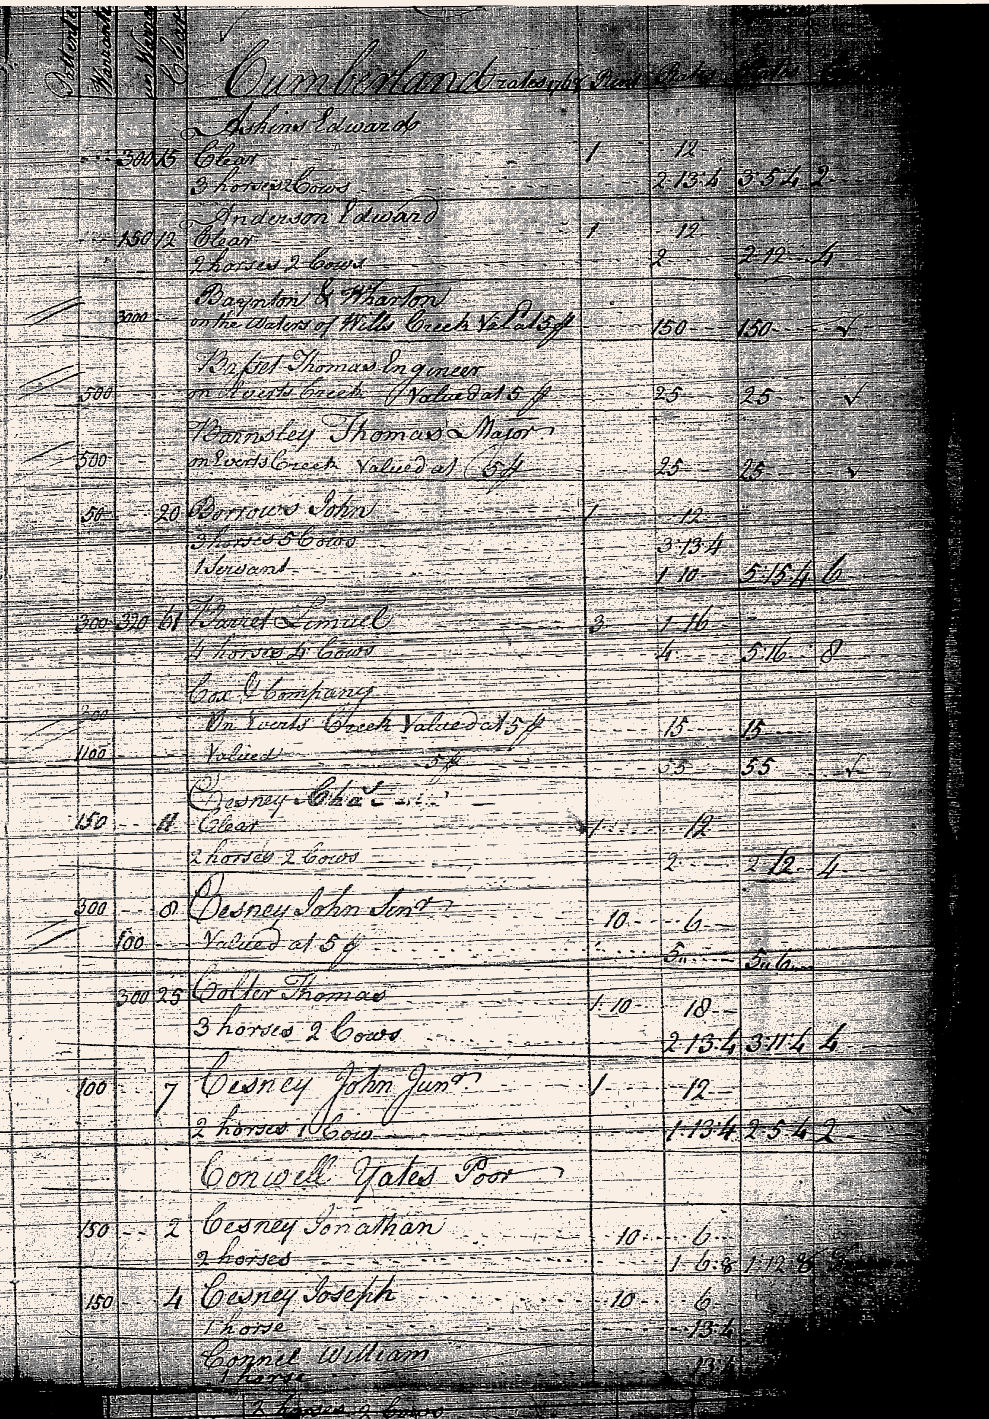 Patented Warrantd Clear
Cumberland rates 1768
Askins Edward
300 15 Clear 1 12
3 horses 2 Cows 2 13 4 3 5 4 2
Anderson Edward
150 12 Clear 1 12
2 horses 2 Cows 2 2 12 4
Baynton & Wharton
3000 on the Waters of Wills Creek Val at 5 150 150 √
Basset Thomas Engineer
500 on Everts Creek Valued at 5 25 25 √
Barnsley Thomas Major
500 on Everts Creek Valued at 5 25 25 √
50 20 Borrows John 1 12
3 horses 5 Cows 3 13 4
1 Servant 1 10 5 15 4 6
300 320 61 Barret Limuel 3 1 16
4 horses 4 Cows 4 5 16 8
Cox & Company
300 On Everts Creek Valued at 5 15 15
1100 Valued 5 55 55 √
Cesney Chas
150 11 Clear 1 12
2 horses 2 Cows 2 2 12 4
300 8 Cesney John Senr 10 6
100 Valued at 5 5 5 6
300 25 Colter Thomas 1 10 18
3 horses 2 Cows 2 13 4 3 11 4 4
100 7 Cesney John Junr 1 12
2 horses 1 Cow 1 13 4 2 5 4 2
Conwell Yates Poor
150 2 Cesney Jonathan 10 6
2 horses 1 6 8 1 12 8
150 4 Cesney Joseph 10 6
1 horse 13 4
Connel William
1 horse 13 4
2 horses 2 Cows